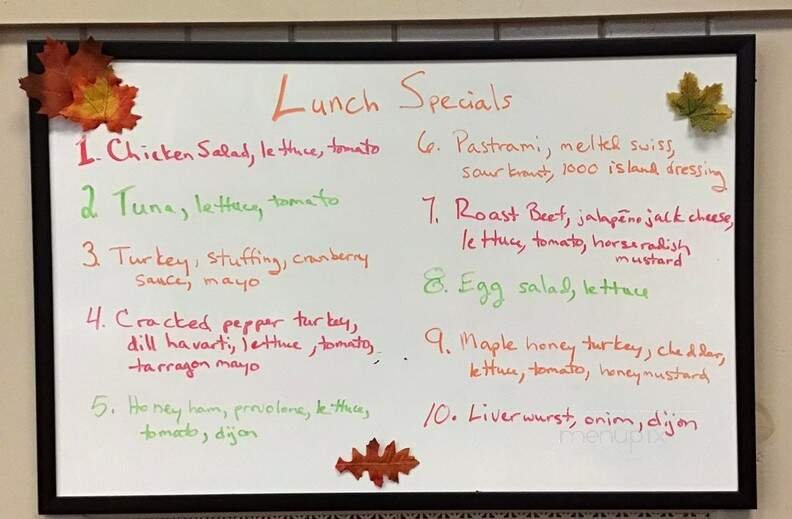 Lunch Specials
1. Chicken Salad, lettuce, tomato
2. Tuna, lettuce, tomato
3. Turkey, stuffing, cranberry
sauce, mayo
4. Cracked pepper turkey,
dill havarti, lettuce, tomato,
tarragon mayo
5. Honey ham, provolone, lettuce,
tomato, dijon
6. Pastrami, melted swiss,
saurkraut, 1000 island dressing
7. Roast Beef, jalapeño jack cheese,
lettuce, tomato, horseradish
mustard
8. Egg salad, lettuce
9. Maple honey turkey, cheddar,
lettuce, tomato, honeymustard
10. Liverwurst, onion, dijon
menupix